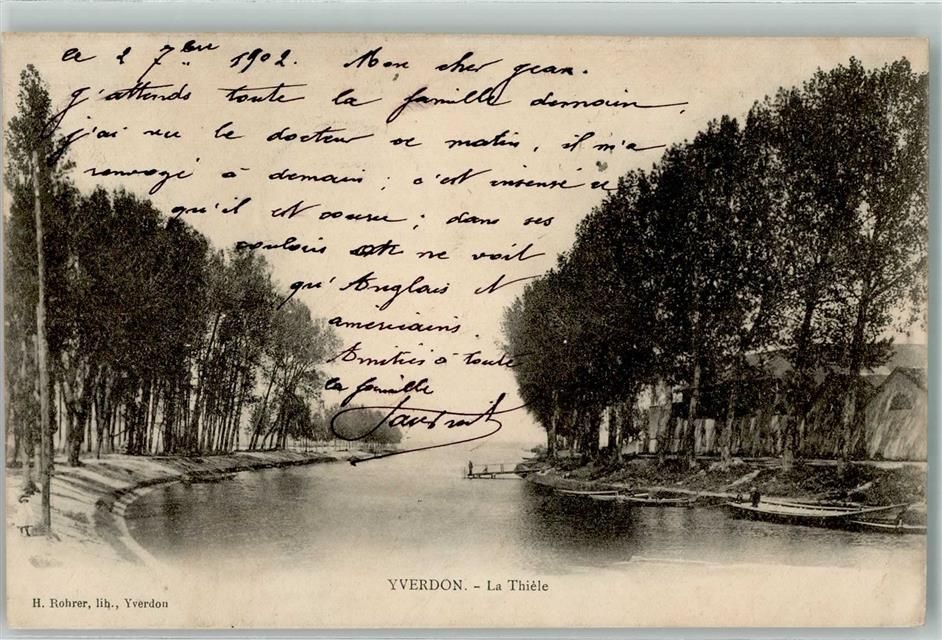 le 2 7bre 1902. Mon cher Jean.
J'attends toute la famille demain,
j'ai vu le docteur ce matin, il m'a
renvoyé à demain ; c'est insensé ce
qu'il est couru ; dans ses
couloirs on ne voit
qu'Anglais et
americains.
Amitiés à toute
la famille
YVERDON. - La Thièle
H. Rohrer, lib., Yverdon